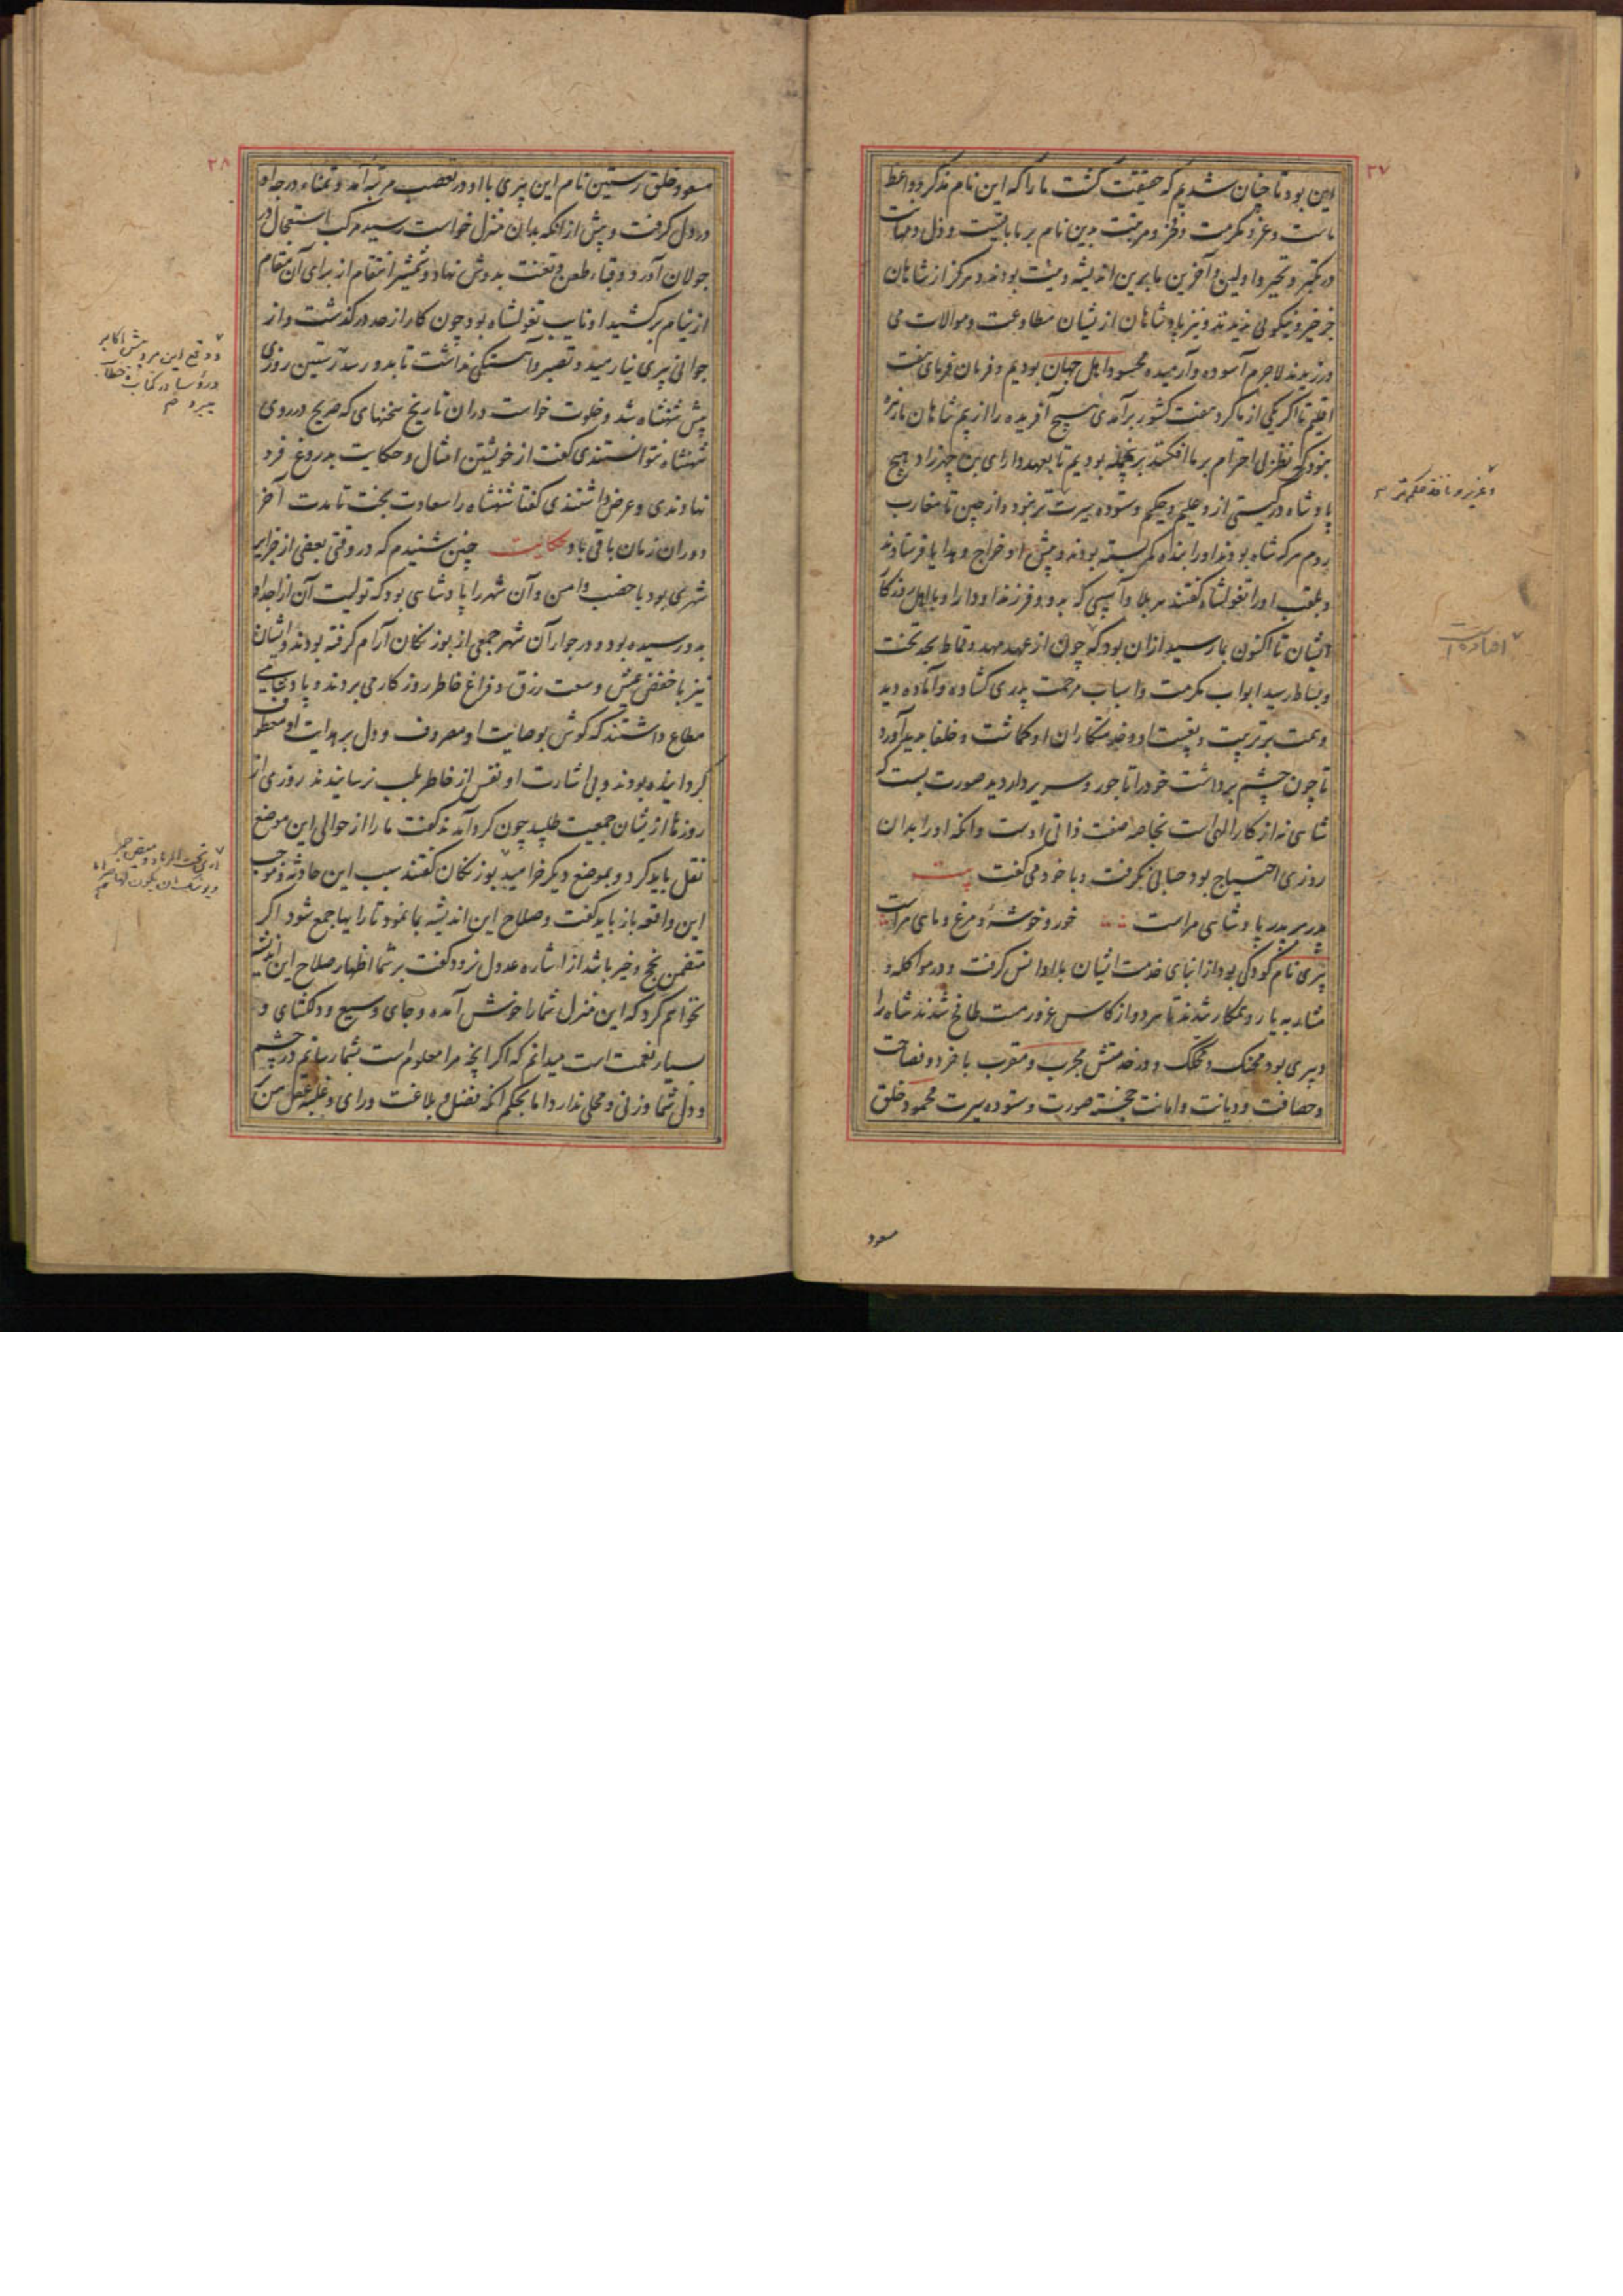 ۲۷
این بود تا چنان شدیم که حقیقت گشت ما را که این نام مذکر و واعظ
ماست و عز و مکرمت و فخر و مرتبت بدین نام بر ما باقیست و ذل و مهانت
در تکبر و تجبر و اولین و آخرین ما برین اندیشه و منت بودند و هرگز از شاهان
جز خیر و نیکویی ندیدند و نیز پادشاهان از یشان مطاوعت و موالات می
ورزیدند لاجرم آسوده و آرمیده محسود اهل جهان بودیم و فرمان فرمای هفت
اقلیم تا اگر یکی از ما گرد هفت کشور برآمدی هیچ آفریده را از بیم شاهان ما زهره
نبودی که نظر بی احترام بر ما افکند برین جمله بودیم تا بعهد دارای بن چهرزاد هیچ
پادشاه در گیتی از و علیم و حکیم و ستوده سیرت تر نبود و از چین تا مغارب
روم هرکه شاه بودند او را بنده کمر بسته بودند و پیش او خراج و هدایا فرستادند
و بلقب او را تغولشاه گفتند هر بلا و آسیبی که بدو و فرزند او دارا و باهل روزگار
ایشان تا اکنون بما رسید ازان بود که چون از عهد مهد و قماط بحد تخت
و بساط رسید ابواب مکرمت و اسباب مرحمت پدری گشاده و آماده دید
و همت بر تربیت و تقیت او و خدمتکاران او گماشت و خلفا پدید آورد
تا چون چشم برداشت خود را تاجور و سریردار دید صورت بست که
شاهی نه از کار الهی است بخاصه صفت ذاتی اوست و آنکه او را بدان
روزی احتیاج بود حسابی نگرفت و با خود می گفت بیت
پدر بر پدر پادشاهی مراست خور و خوشه و مرغ و ماهی مراست
بیری نام کودکی بود از ابنای خدمت ایشان با دارا انس گرفت و در مواکله و
مشاربه یار و همکار شدند تا هر دو از کاس غرور مست طافح شدند شاه را
دبیری بود محنک و محکک و در خدمتش مجرب و مقرب با خرد و فصاحت
و حصافت و دیانت و امانت خجسته صورت و ستوده سیرت محمود خلق
مسعود
۲۸
مسعود خلق رستین نام این بیری با او در تعصب مرتبه آمد و تمناء درجه او
در دل گرفت و پیش از آنکه بدان منزل خواست رسید مرکب استعجال در
جولان آورد و قباء طعن و تعنت بدوش نهاد و شمشیر انتقام از برای آن مقام
از نیام برکشید او نایب تغولشاه بود چون کار از حد در گذشت و از
جوانی بیری نیارمید و تعییر و آهستگی نداشت تا بدو رسد رستین روزی
پیش شهنشاه شد و خلوت خواست دران تاریخ سخنهای که صریح در روی
شهنشاه نتوانستندی گفت از خویشتن امثال و حکایت بدروغ فرو
نهادندی و عرض داشتندی گفتا شهنشاه را سعادت بخت تا مدت آخر
دوران زمان باقی باد حکایت چنین شنیدم که در وقتی بعضی از جزایر
شهری بود با خصب و امن و آن شهر را پادشاهی بود که تولیت آن از اجداد
بدو رسیده بود و در جوار آن شهر جمعی از بوزنگان آرام گرفته بودند و ایشان
نیز با خفض عیش و سعت رزق و فراغ خاطر روزگار می بردند و پادشاهی
مطاع داشتند که گوش بوصایت او مصروف و دل بر هدایت او معطوف
گردانیده بودند و بی اشارت او نفس از خاطر بلب نرسانیدند روزی از
روزها ازیشان جمعیت طلبید چون گرد آمدند گفت ما را از حوالی این موضع
نقل باید کرد و بموضع دیگر خرامید بوزنگان گفتند سبب این حادثه و موجب
این واقعه باز باید گفت و صلاح این اندیشه بما نمود تا رایها جمع شود اگر
متضمن نجح و خیر باشد از اشاره عدول نرود گفت بر شما اظهار صلاح این اندیشه
نخواهم کرد که این منزل شما را خوش آمده و جای وسیع و دلگشای و
بسیار نعمت است میدانم که اگر آنچه مرا معلوم است بشما رسانم در چشم
و دل شما وزنی و محلی ندارد اما بحکم آنکه فضل و بلاغت و رای و غلبه عقل من